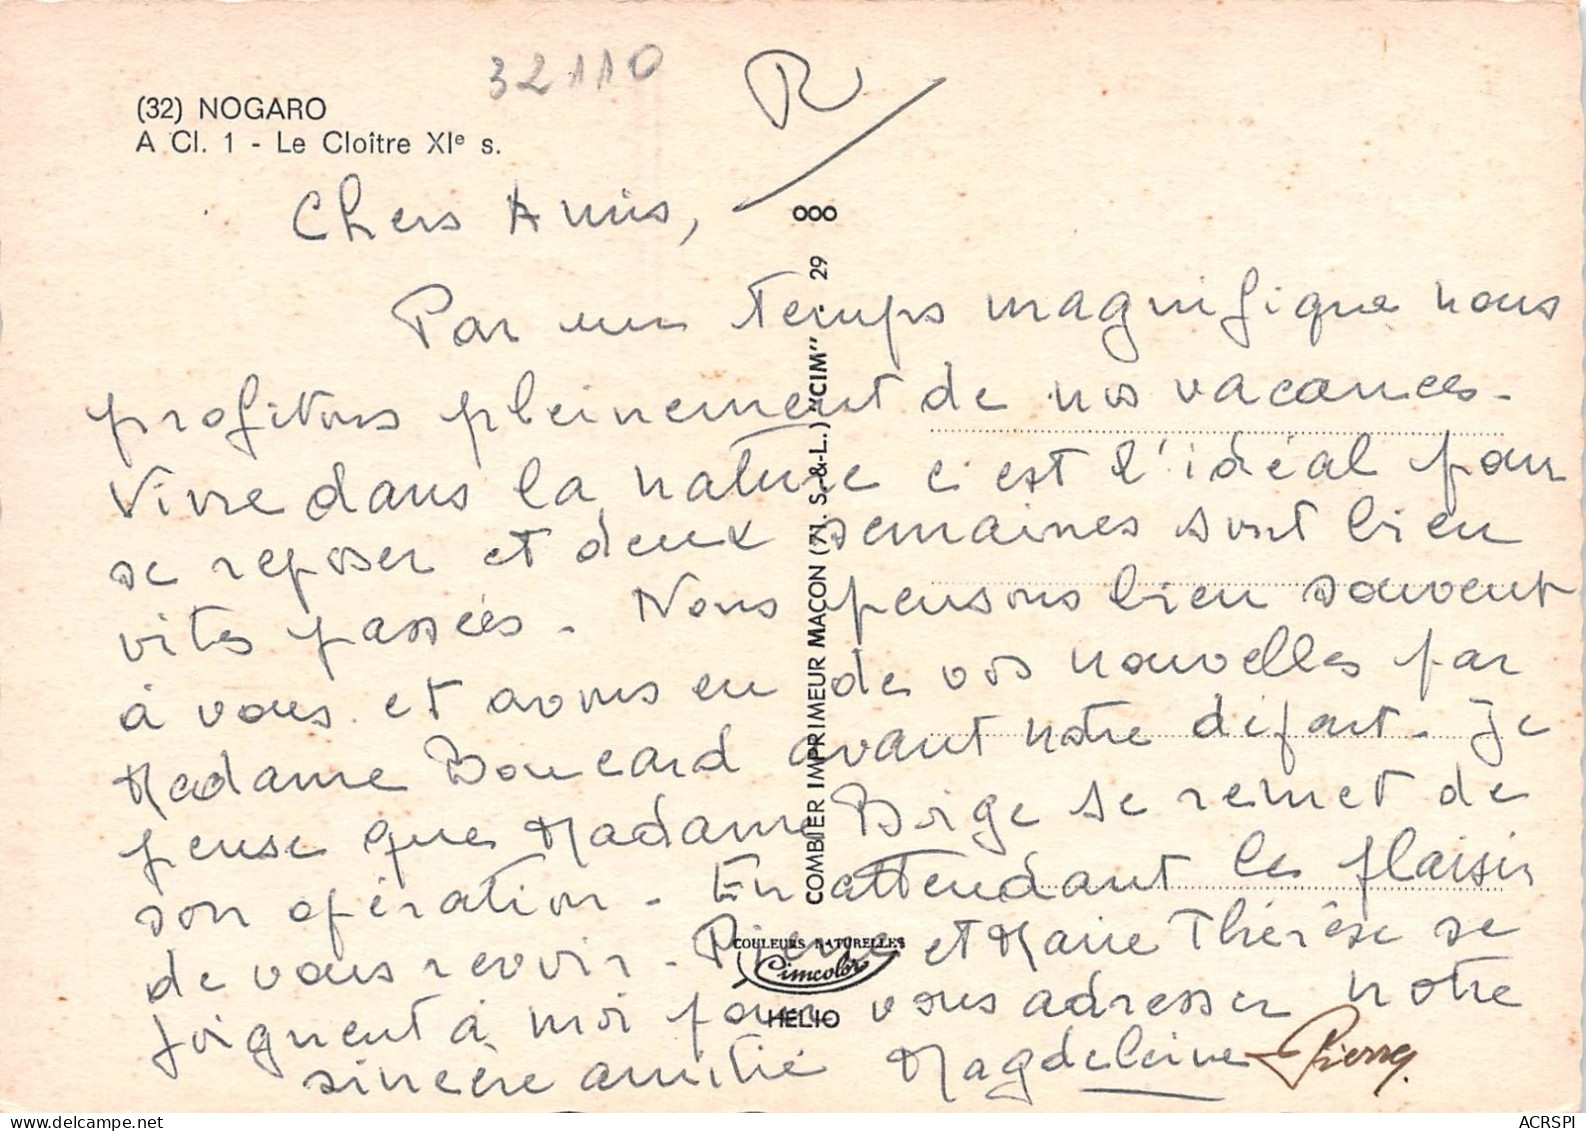 32110
R
(32) NOGARO
A Cl. 1 - Le Cloître XIe s.
Chers Amis,
Par un temps magnifique nous
profitons pleinement de nos vacances.
Vivre dans la nature c'est l'idéal pour
se reposer et deux semaines sont bien
vites passées. Nous pensons bien souvent
à vous et avons eu de vos nouvelles par
Madame Boucard avant notre départ. Je
pense que Madame Borge se remet de
son opération. En attendant le plaisir
de vous revoir. Pierre et Marie Thérèse se
joignent à moi pour vous adresser notre
sincère amitié Magdeleine Pierre
COMBIER IMPRIMEUR MACON (71. S.-&-L.) "CIM" 29 000
COULEURS NATURELLES
Cimcolor
HELIO
ACRSPI